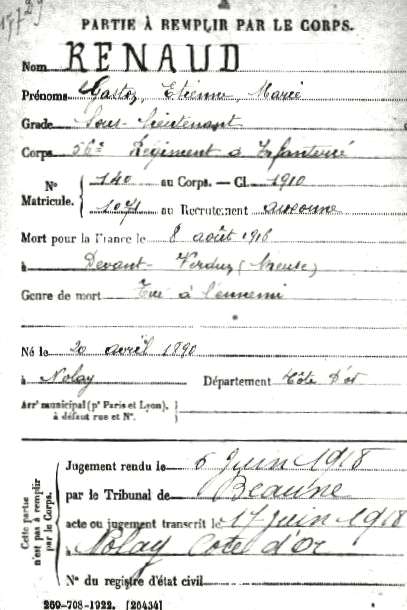 PARTIE À REMPLIR PAR LE CORPS.
Nom RENAUD
Prénoms Gaston, Etienne, Marie
Grade Sous-lieutenant
Corps 56e Régiment d'Infanterie
N° Matricule. { 140 au Corps. — Cl. 1910
1071 au Recrutement auxonne
Mort pour la France le 8 août 1916
à Devant Verdun (Meuse)
Genre de mort Tué à l'ennemi
Né le 20 avril 1890
à Nolay Département Côte d'or
Arrt municipal (pr Paris et Lyon), }
à défaut rue et N°.
Cette partie n'est pas à remplir par le Corps.
Jugement rendu le 6 Juin 1918
par le Tribunal de Beaune
acte ou jugement transcrit le 17 juin 1918
à Nolay Cote d'Or
N° du registre d'état civil
260-708-1922. [26434]